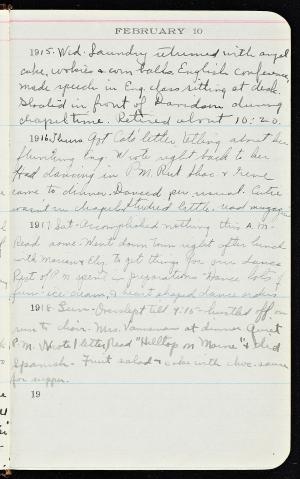 FEBRUARY 10
1915. Wed. Laundry returned with angel
cake, cookies & corn balls. English conference,
made speech in Eng. class sitting at desk.
in front of Davidson during
chapel time. Retired about 10:20.
1916. Thurs Got Cate's letter, telling about her
flunking Eng. Wrote right back to her
Had dancing in P.M. &
came to dinner. Danced per usual.
wasn't in chapel. Studied little. read magazine
1917. Sat. Accomplished nothing this A.M.
Read some. Went down town right after lunch
with Marion & to get things for our dance
Rest of P.M. spent in preparations. Dance lots of
fun. ice cream, & heart shaped dance orders
1918 Sun. Overslept till 9.15 - hustled off
to choir. Mrs. at dinner Quiet
P.M. Wrote 1 letter, Read "Hilltop on Marne" & did
Spanish. Fruit salad & cake with choc. sauce
for supper.
19